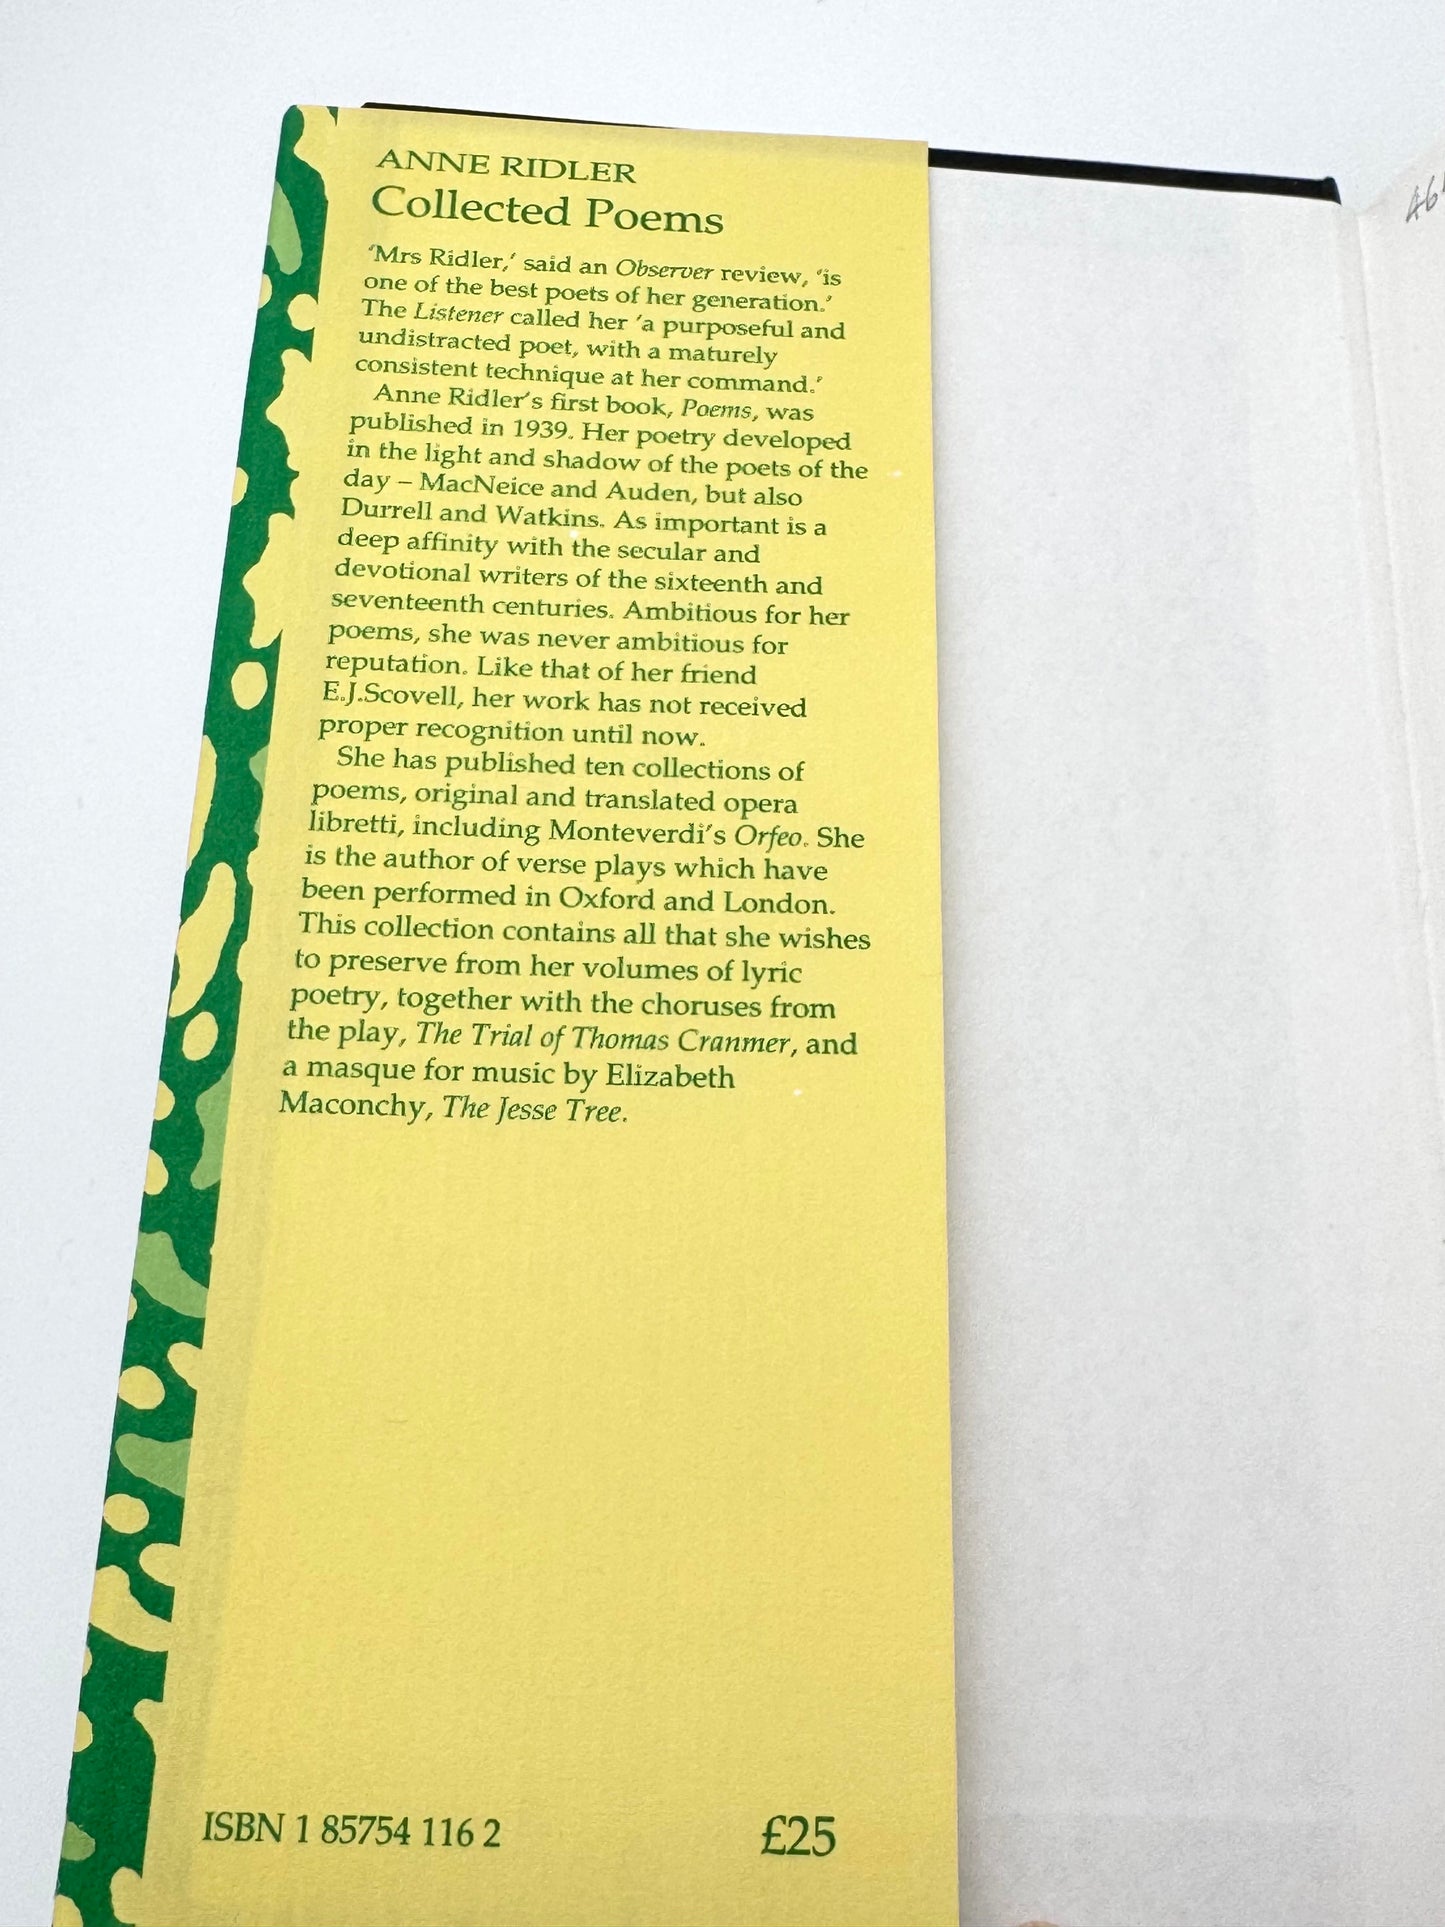 ANNE RIDLER
Collected Poems
'Mrs Ridler,' said an Observer review, 'is
one of the best poets of her generation.'
The Listener called her 'a purposeful and
undistracted poet, with a maturely
consistent technique at her command.'
Anne Ridler's first book, Poems, was
published in 1939. Her poetry developed
in the light and shadow of the poets of the
day – MacNeice and Auden, but also
Durrell and Watkins. As important is a
deep affinity with the secular and
devotional writers of the sixteenth and
seventeenth centuries. Ambitious for her
poems, she was never ambitious for
reputation. Like that of her friend
E.J.Scovell, her work has not received
proper recognition until now.
She has published ten collections of
poems, original and translated opera
libretti, including Monteverdi's Orfeo. She
is the author of verse plays which have
been performed in Oxford and London.
This collection contains all that she wishes
to preserve from her volumes of lyric
poetry, together with the choruses from
the play, The Trial of Thomas Cranmer, and
a masque for music by Elizabeth
Maconchy, The Jesse Tree.
ISBN 1 85754 116 2
£25